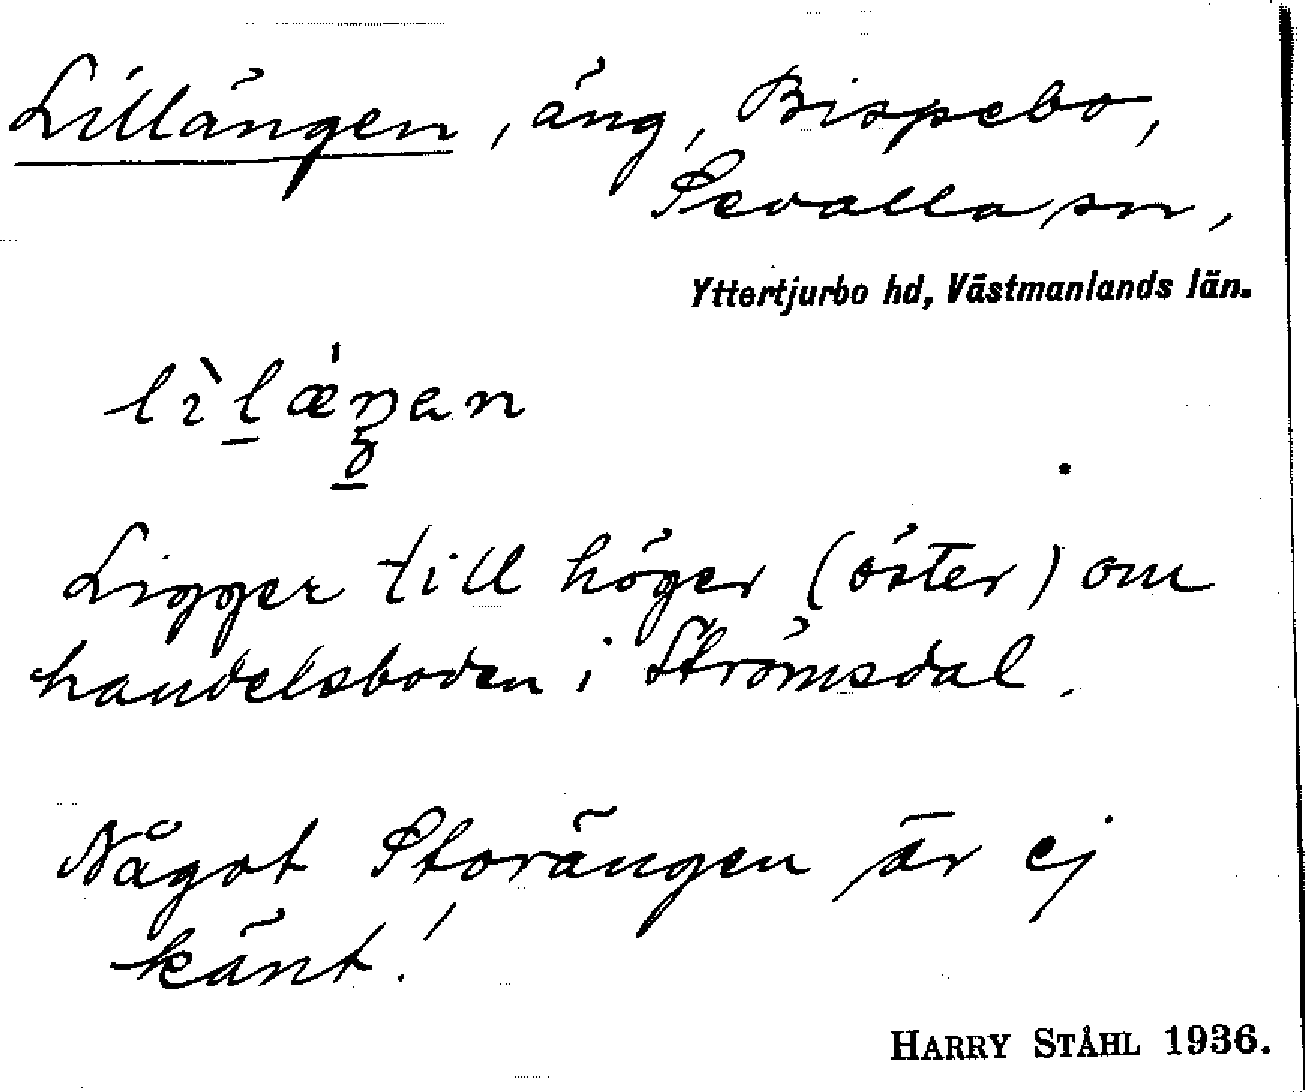 Lillängen, äng, Bispebo,
Sevalla sn,
Yttertjurbo hd, Västmanlands län.
lìlǽŋan
Ligger till höger (öster) om
handelsboden i Strömsdal.
Något Storängen är ej
känt!
HARRY STÅHL 1936.